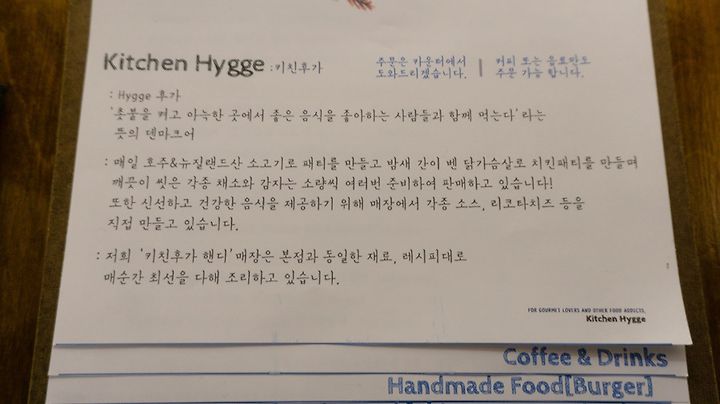 Kitchen Hygge :키친후가
주문은 카운터에서 | 커피 또는 음료만도
도와드리겠습니다. | 주문 가능 합니다.
: Hygge 후가
'촛불을 켜고 아늑한 곳에서 좋은 음식을 좋아하는 사람들과 함께 먹는다'라는
뜻의 덴마크어
: 매일 호주&뉴질랜드산 소고기로 패티를 만들고 밤새 간이 벤 닭가슴살로 치킨패티를 만들며
깨끗이 씻은 각종 채소와 감자는 소량씩 여러번 준비하여 판매하고 있습니다!
또한 신선하고 건강한 음식을 제공하기 위해 매장에서 각종 소스, 리코타치즈 등을
직접 만들고 있습니다.
: 저희 '키친후가 핸디'매장은 본점과 동일한 재료, 레시피대로
매순간 최선을 다해 조리하고 있습니다.
FOR GOURMET LOVERS AND OTHER FOOD ADDICTS,
Kitchen Hygge
Coffee & Drinks
Handmade Food[Burger]